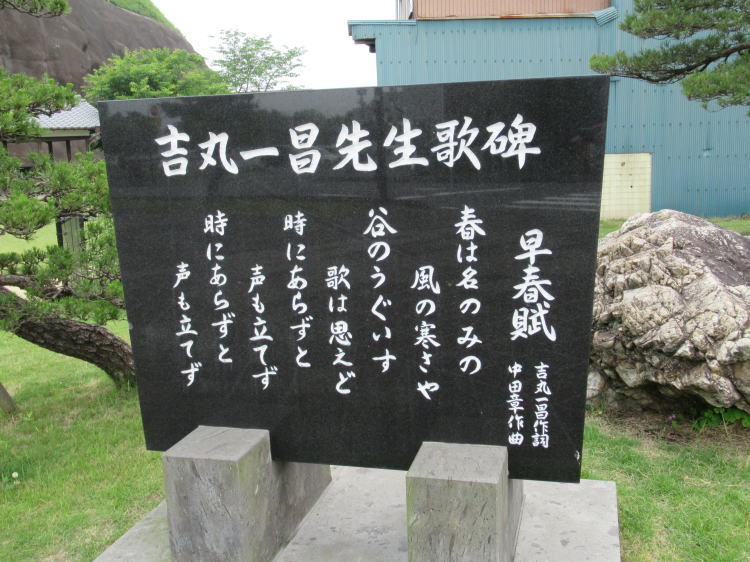 吉丸一昌先生歌碑
早春賦
吉丸一昌作詞
中田章作曲
春は名のみの
風の寒さや
谷のうぐいす
歌は思えど
時にあらずと
声も立てず
時にあらずと
声も立てず